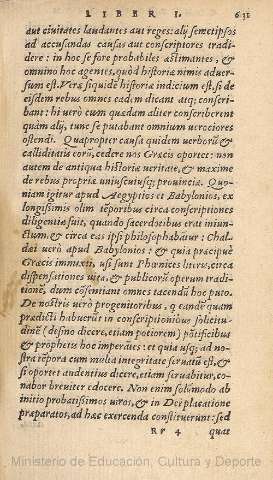 LIBER I. 631
aut ciuitates laudantes aut reges: alij semetipsos
ad accusandas causas aut conscriptores tradi-
dere: in hoc se fore probabiles æstimantes, &
omnino hoc agentes, quòd historiæ nimis aduer-
sum est. Veræ siquidẽ historiæ indicium est, si de
eisdem rebus omnes eadem dicant atq; conscri-
bant: hi uerò cum quædam aliter conscriberent
quàm alij, tunc se putabant omnium ueraciores
ostendi. Quapropter causa quidem uerborũ &
calliditatis eorũ, cedere nos Græcis oportet: non
autem de antiqua historiæ ueritate, & maxime
de rebus proprijs uniuscuiusq; prouinciæ. Quo-
niam igitur apud Aegyptios et Babylonios, ex
longissimis olim tẽporibus circa conscriptiones
diligentia fuit, quando sacerdotibus erat iniun-
ctum, & circa eas ipsi philosophabãtur: Chal-
dæi uerò apud Babylonios: & quia præcipuè
Græcis immixti, usi sunt Phœnices literis, circa
dispensationes uitæ, & publicorũ operum tradi-
tione, dum cõsentiant omnes tacendũ hoc puto.
De nostris uerò progenitoribus, q eandẽ quàm
prædicti habuerũt in conscriptionibus solicitu-
dinẽ (desino dicere, etiam potiorem) põtificibus
& prophetis hoc imperãtes: et quia usq; ad no-
stra tẽpora cum multa integritate seruatũ est, &
si oportet audentius dicere, etiam seruabitur, co-
nabor breuiter edocere. Non enim solũmodo ab
initio probatissimos uiros, & in Dei placatione
præparatos, ad hæc exercenda constituerunt: sed
Rr 4 quæ
Ministerio de Educación, Cultura y Deporte